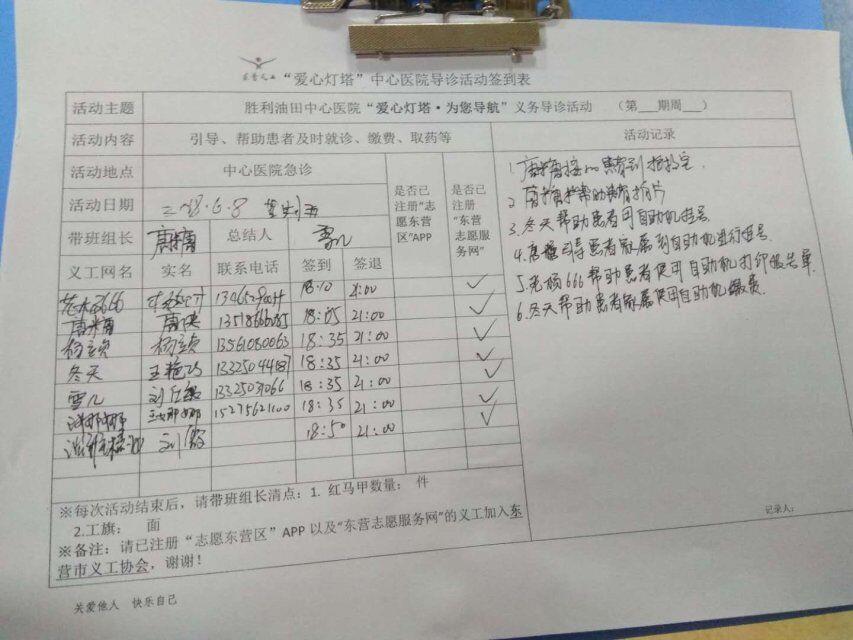 “爱心灯塔”中心医院导诊活动签到表
活动主题 胜利油田中心医院“爱心灯塔·为您导航”义务导诊活动 （第___期周___）
活动内容 引导、帮助患者及时就诊、缴费、取药等 活动记录
活动地点 中心医院急诊 是否已注册“志愿东营区”APP 是否已注册“东营志愿服务网”
活动日期 6.8
带班组长 总结人 雪儿
义工网名 实名 联系电话 签到 签退
18:10 21:00 ✓
唐 18:05 21:00 ✓
杨 杨 13561080063 18:35 21:00 ✓
冬天 王艳 18:35 21:00 ✓
雪儿 刘 13325031066 18:35 21:00 ✓
娜娜 15275621100 18:35 21:00 ✓
刘 18:50 21:00 ✓
1.
2. 帮助患者拍片
3.冬天帮助患者用自助机挂号
4. 引导患者家属到自助机进行挂号
5. 666帮助患者使用自助机打印报告单
6.冬天帮助患者家属使用自助机缴费
※每次活动结束后，请带班组长清点：1. 红马甲数量： 件
2.工旗： 面
记录人：
※备注：请已注册“志愿东营区”APP 以及“东营志愿服务网”的义工加入东
营市义工协会，谢谢！
关爱他人 快乐自己